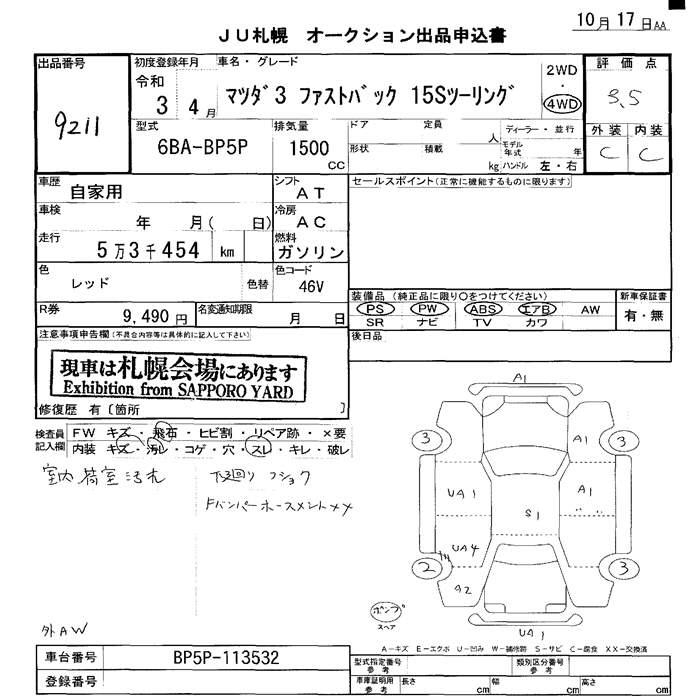 10月17日AA
JU札幌 オークション出品申込書
出品番号
9211
初度登録年月
令和
3 4月
車名・グレード
マツダ3 ファストバック 15Sツーリング
2WD
・
4WD
評価点
3.5
外装 内装
C C
型式
6BA-BP5P
排気量
1500
CC
ドア 定員
人
形状 積載
kg
ディーラー・並行
モデル年式 年
ハンドル 左・右
車歴
自家用
シフト
AT
セールスポイント(正常に機能するものに限ります)
車検
年 月( 日)
冷房
AC
走行
5万3千454 km
燃料
ガソリン
色
レッド
色替
色コード
46V
装備品 (純正品に限り○をつけてください)
PS PW ABS エアB AW
SR ナビ TV カワ
新車保証書
有・無
R券
9,490円
名変通知期限
月 日
後日品
注意事項申告欄(不具合内容等は具体的に記入して下さい)
現車は札幌会場にあります
Exhibition from SAPPORO YARD
修復歴 有〔箇所 〕
検査員記入欄
FW キズ・飛石・ヒビ割・リペア跡・×要
内装 キズ・汚レ・コゲ・穴・スレ・キレ・破レ
室内荷室汚れ
下廻り フショク
FバンパーホースメントXX
A1
3 3
A1
UA1 A1
S1
UA4
2 3
A2
ポンプ
スペア
UA1
外AW
A-キズ E-エクボ U-凹み W-補修跡 S-サビ C-腐食 XX-交換済
車台番号
BP5P-113532
登録番号
型式指定番号
参考
類別区分番号
参考
車庫証明用
参考
長さ cm 幅 cm 高さ cm